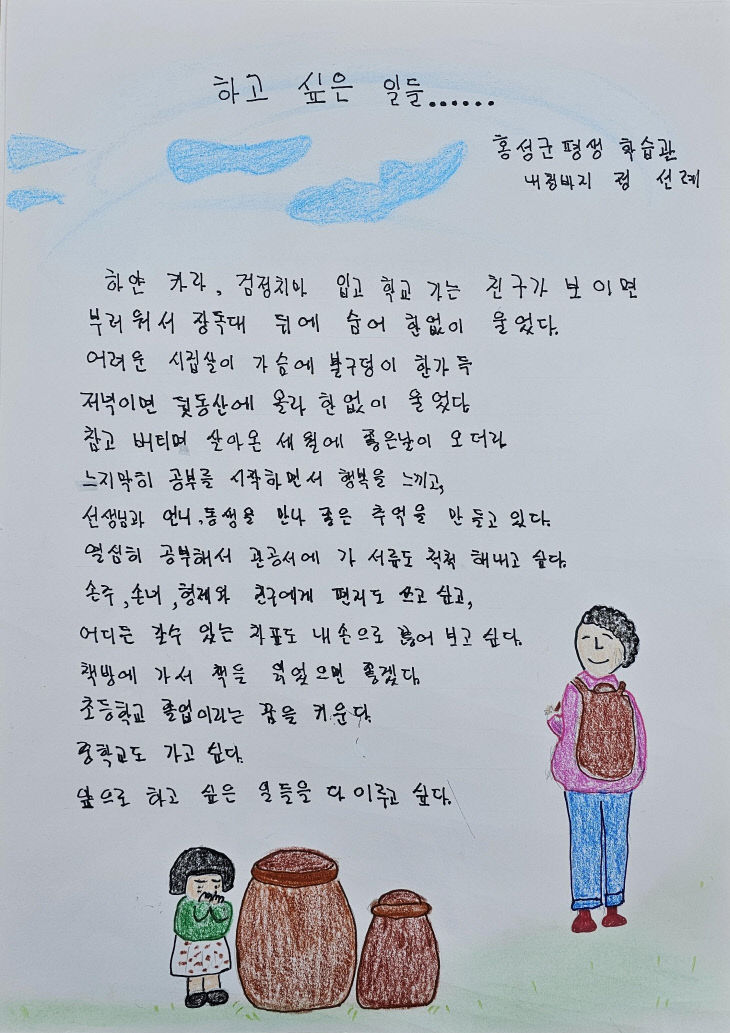 하고 싶은 일들......
홍성군평생 학습관
내림바지 정 선례
하얀 카라, 검정치마 입고 학교 가는 친구가 보이면
부러워서 장독대 뒤에 숨어 한없이 울었다.
어려운 시집살이 가슴에 불구덩이 한가득
저녁이면 뒻동산에 올라 한없이 울었다
참고 버티며 살아온 세월에 좋은날이 오더라
느지막히 공부를 시작하면서 행복을 느끼고,
선생님과 언니,동생을 만나 좋은 추억을 만들고 있다.
열심히 공부해서 관공서에 가 서류도 척척 해내고 싶다.
손주,손녀,형제와 친구에게 편지도 쓰고 싶고,
어디든 갈수 있는 차표도 내손으로 끊어 보고 싶다.
책방에 가서 책을 읽었으면 좋겠다.
초등학교 졸업이라는 꿈을 키운다.
중학교도 가고 싶다.
앞으로 하고 싶은 일들을 다 이루고 싶다.